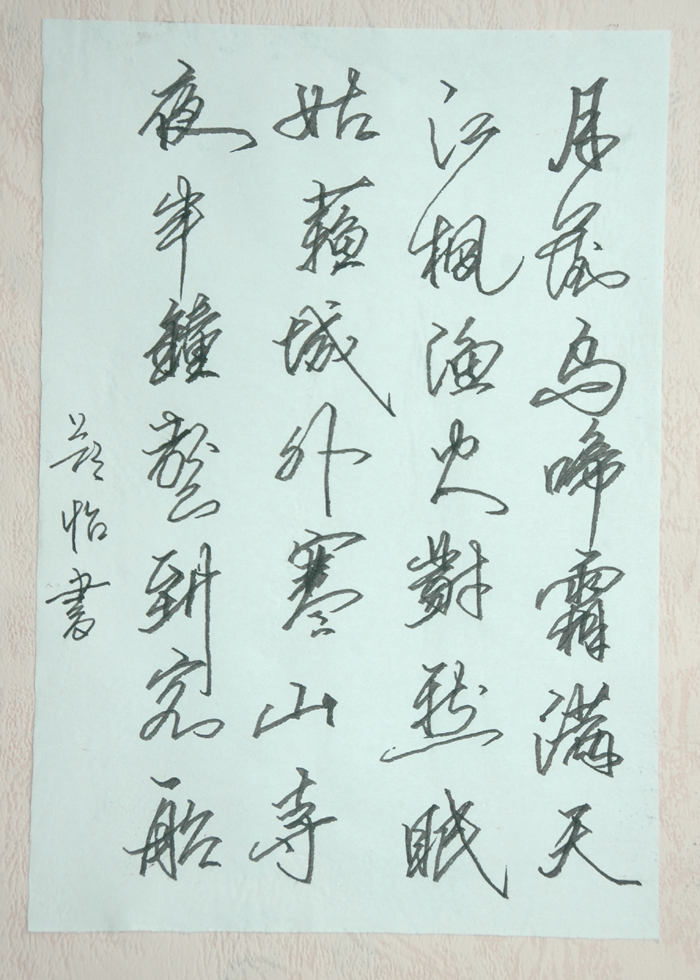 月落烏啼霜滿天
江楓漁火對愁眠
姑蘓城外寒山寺
夜半鐘聲到客船
怡書